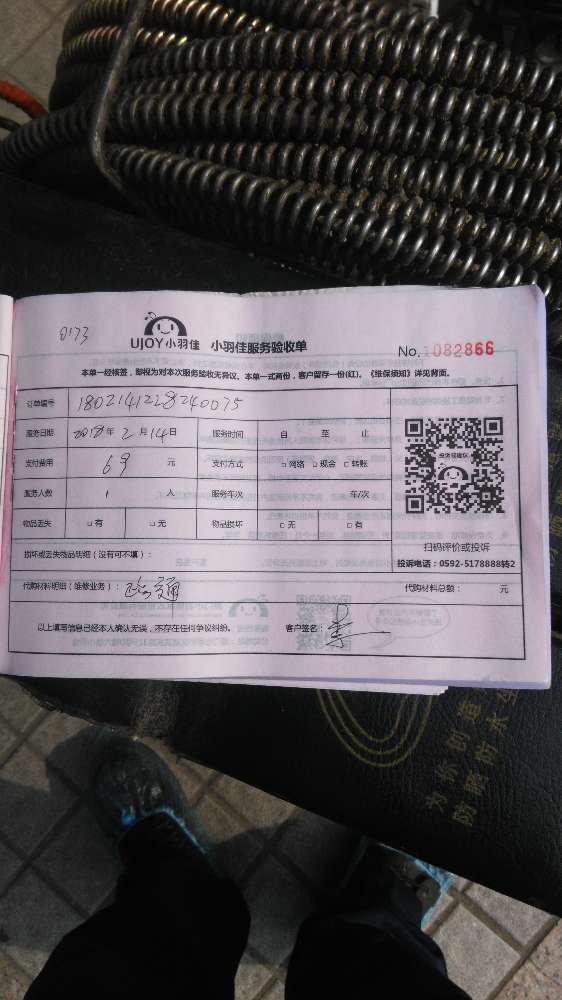 0173
UJOY小羽佳 小羽佳服务验收单 No. 1082866
本单一经核签，即视为对本次服务验收无异议。本单一式两份，客户留存一份(红)。《维保须知》详见背面。
订单编号 1802141228240075
服务日期 2018年 2 月 14 日 服务时间 自 至 止
支付费用 69 元 支付方式 □ 网络 □ 现金 □ 转账
服务人数 1 人 服务车次 车/次
物品丢失 □ 有 □ 无 物品损坏 □ 无 □ 有
扫码评价或投诉
投诉电话：0592-5178888转2
损坏或丢失物品明细（没有可不填）：
代购材料明细（维修业务）： 代购材料总额： 元
以上填写信息已经本人确认无误，不存在任何争议纠纷。 客户签名：
为你创造
防晒防水